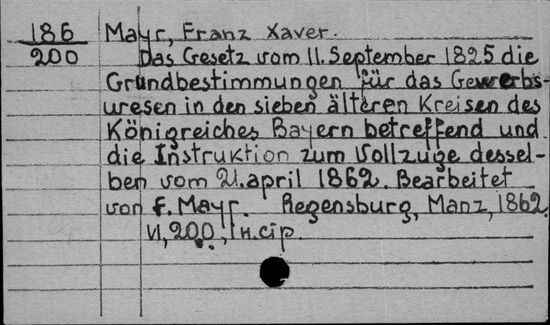 186 Mayr, Franz Xaver.
200 Das Gesetz vom 11. September 1825 die
Grundbestimmungen für das Gewerbs-
wesen in den sieben älteren Kreisen des
Königreiches Bayern betreffend und
die Instruktion zum Vollzuge dessel-
ben vom 21. april 1862. Bearbeitet
von F. Mayr. Regensburg, Manz, 1862.
VI, 200